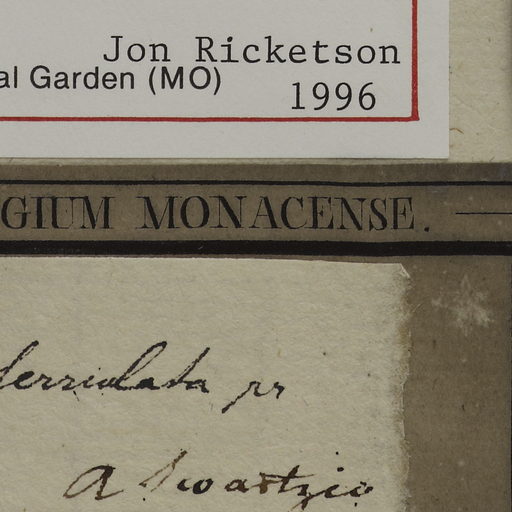 Jon Ricketson
al Garden (MO)
1996
GIUM MONACENSE.
pr
a Swartzio